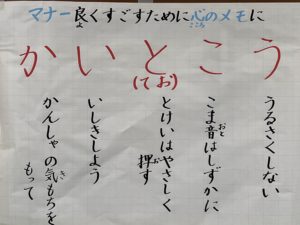 マナー良くすごすために心のメモに
よ
こころ
かいとこう
(てお)
うるさくしない
こま音はしずかに
おと
とけいはやさしく
押す
お
いしきしよう
かんしゃの気もちを
き
もって